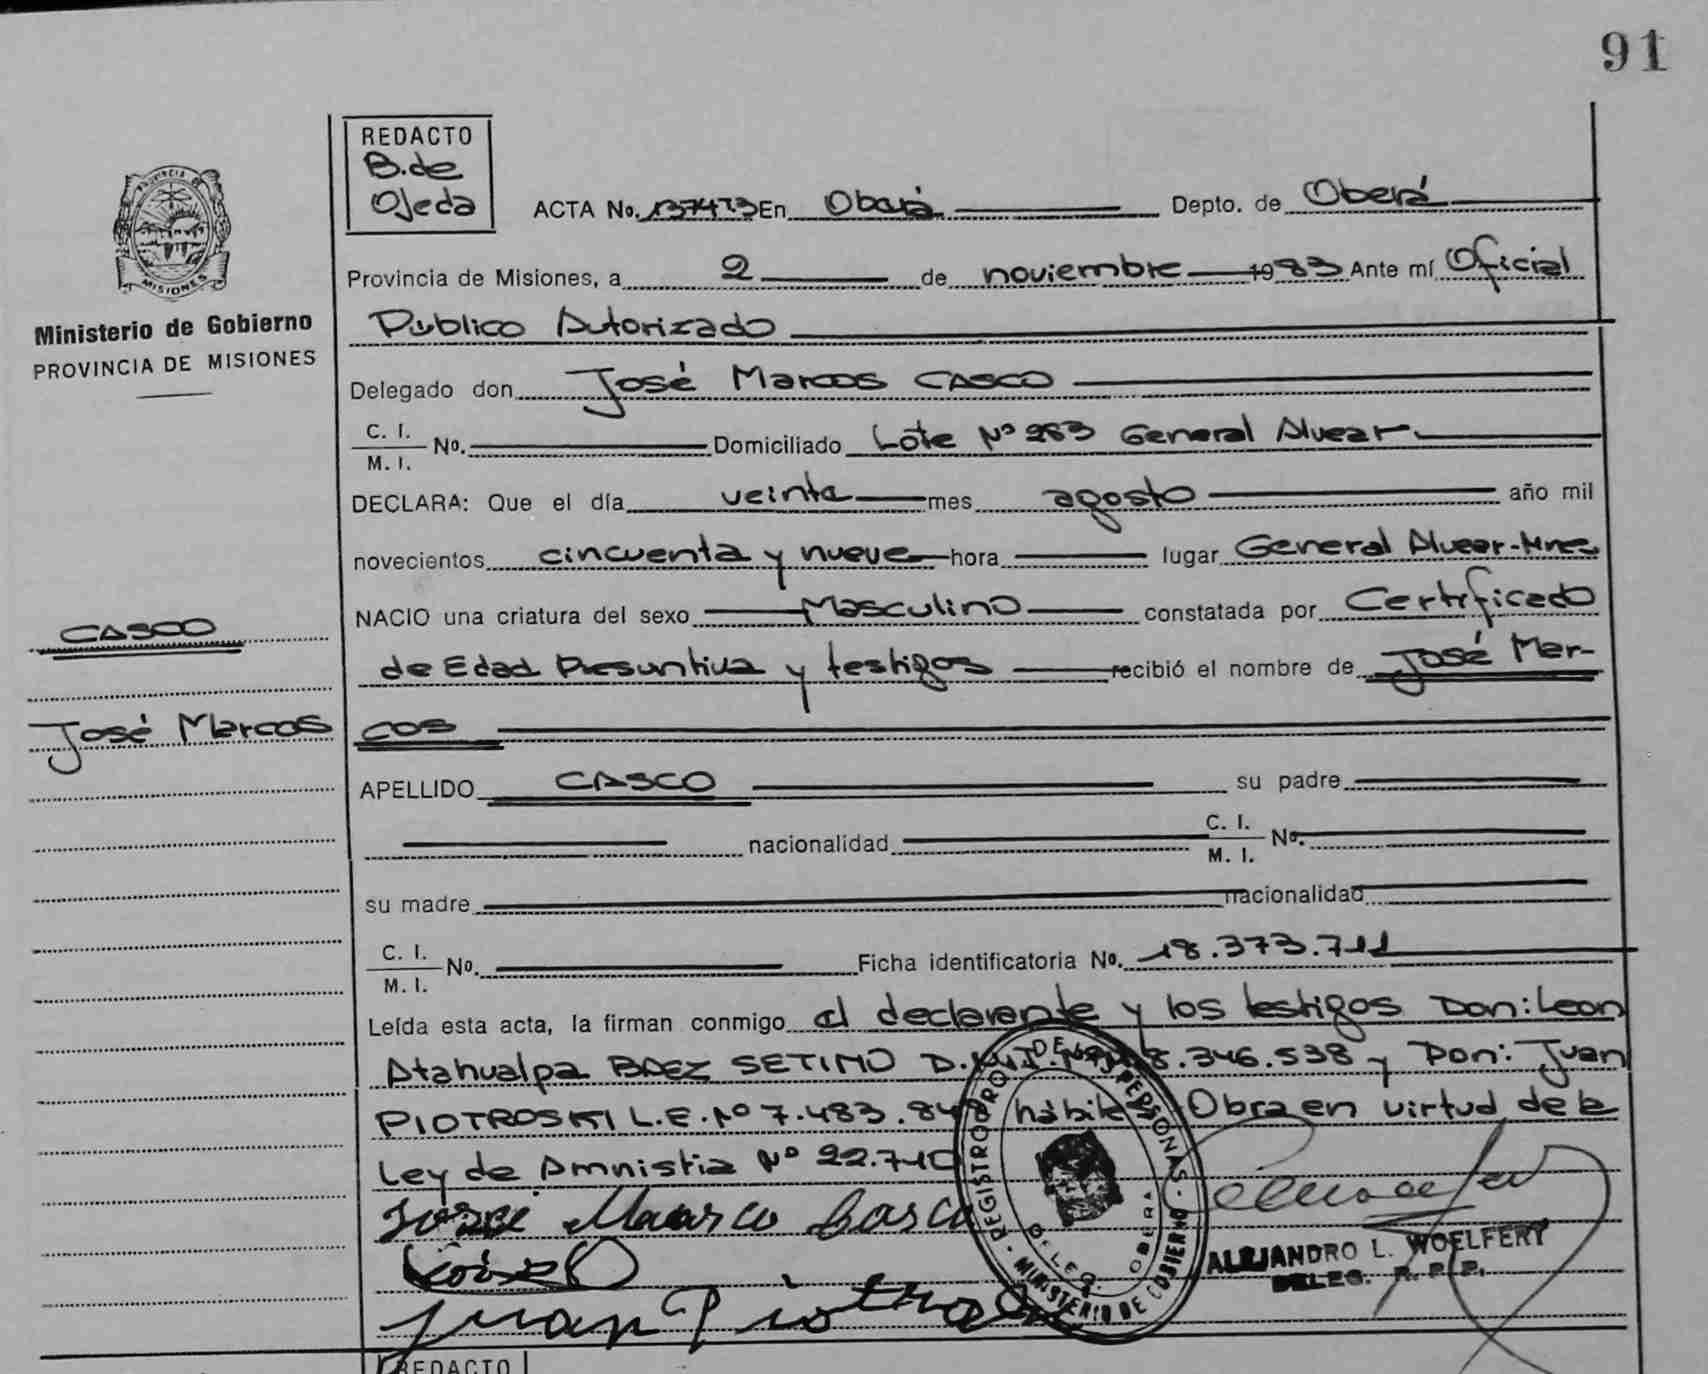 91
REDACTO
B. de
Ojeda
ACTA No. En Oberá Depto. de Oberá
Provincia de Misiones, a 2 de noviembre 1983 Ante mí Oficial
Público Autorizado
Delegado don José Marcos CASCO
C. I.
M. I. No. Domiciliado Lote Nº 283 General Alvear
DECLARA: Que el día veinte mes agosto año mil
novecientos cincuenta y nueve hora lugar General Alvear-Mnes
NACIO una criatura del sexo Masculino constatada por Certificado
de Edad Presuntiva y testigos recibió el nombre de José Mar-
cos
APELLIDO CASCO su padre
nacionalidad C. I.
M. I. No.
su madre nacionalidad
C. I.
M. I. No. Ficha identificatoria No. 18.373.711
Leída esta acta, la firman conmigo el declarante y los testigos Don: Leon
Atahualpa BAEZ SETIMO 8.346.538 y Don: Juan
PIOTROSKI L.E. Nº 7.483. Obra en virtud de la
Ley de Amnistia Nº 22.710
PROVINCIA DE
MISIONES
Ministerio de Gobierno
PROVINCIA DE MISIONES
CASCO
José Marcos
Marco Casco
Juan
REGISTRO PROV. DE LAS PERSONAS
MINISTERIO DE GOBIERNO
DELEG. OBERA
ALEJANDRO L. WOELFERT
DELEG. R. P. P.
REDACTO